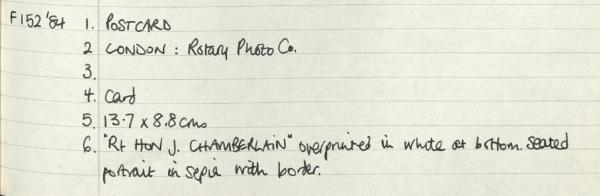 F152 '84 1. POSTCARD
2 LONDON : Rotary Photo Co.
3.
4. Card
5. 13.7 x 8.8 cms
6. "Rt HON J. CHAMBERLAIN" overprinted in white at bottom. Seated
portrait in sepia with border.